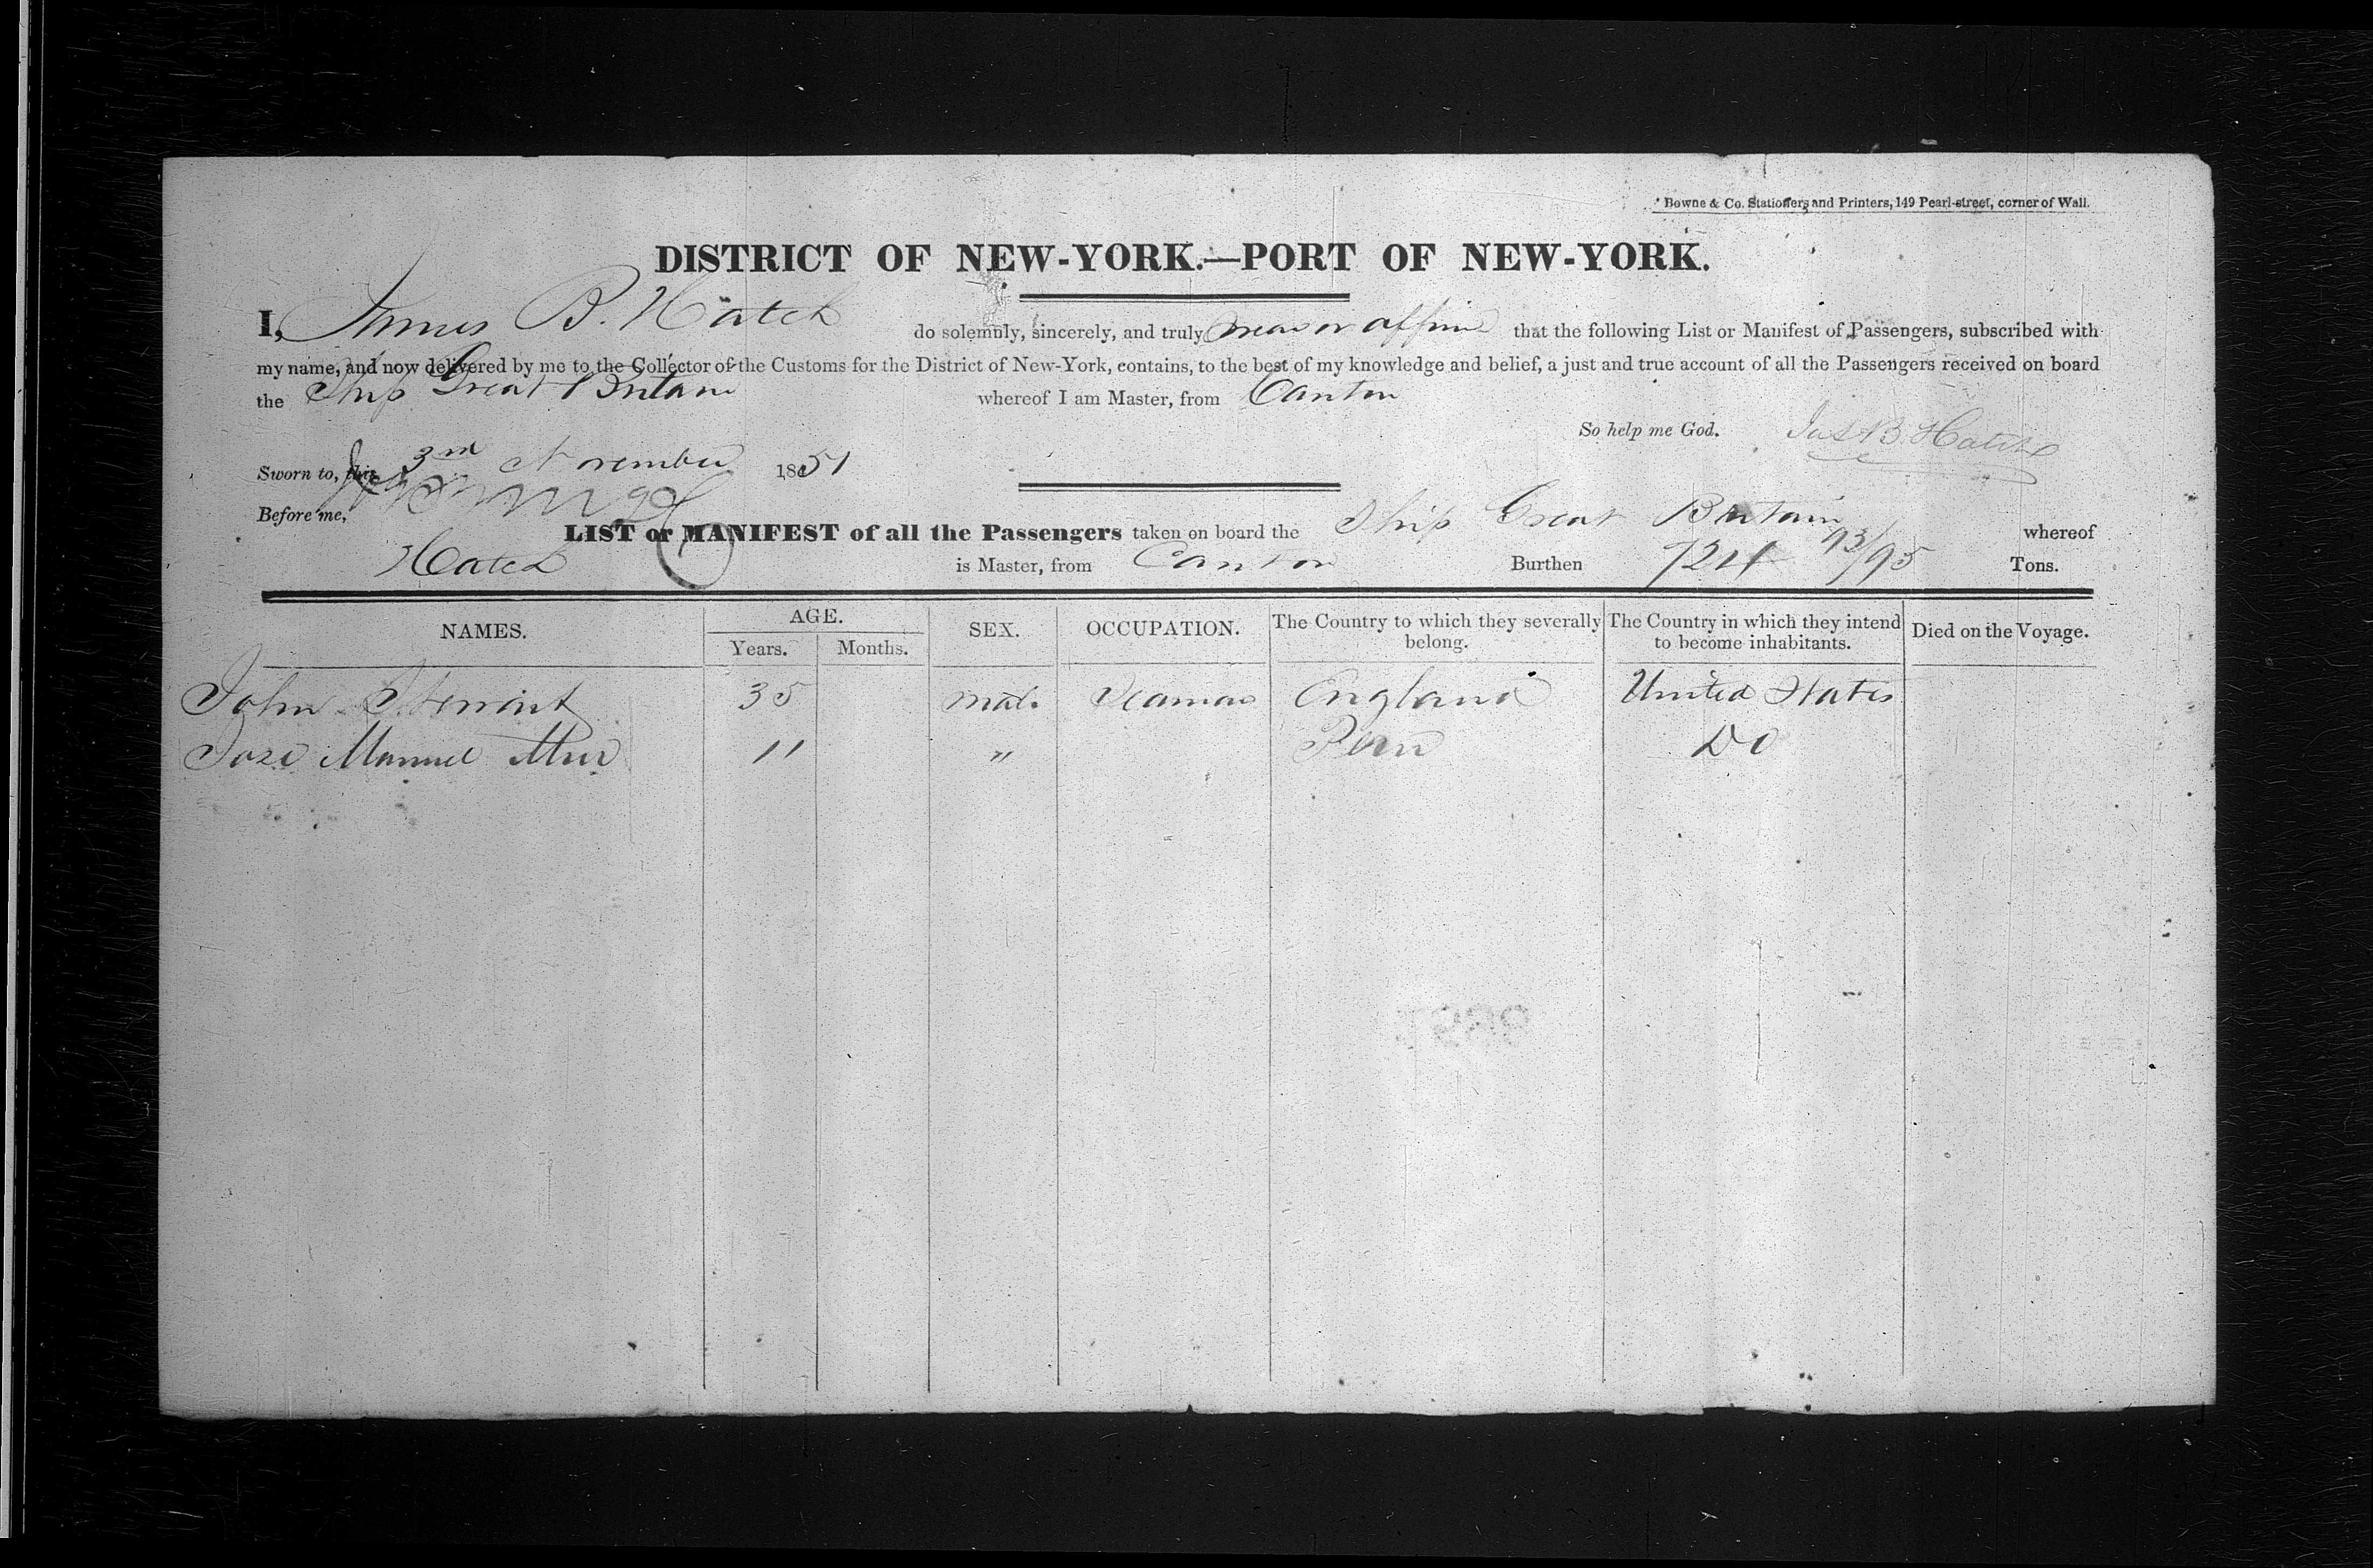 Bowne & Co. Stationers and Printers, 149 Pearl-street, corner of Wall.
DISTRICT OF NEW-YORK.—PORT OF NEW-YORK.
I, James B. Hatch do solemnly, sincerely, and truly swear or affirm that the following List or Manifest of Passengers, subscribed with
my name, and now delivered by me to the Collector of the Customs for the District of New-York, contains, to the best of my knowledge and belief, a just and true account of all the Passengers received on board
the Ship Great Britain whereof I am Master, from Canton
So help me God. Jas B. Hatch
Sworn to, this 3rd November 1851
Before me,
LIST or MANIFEST of all the Passengers taken on board the Ship Great Britain whereof
Hatch is Master, from Canton Burthen 724 93/95 Tons.
NAMES. AGE. Years. Months. SEX. OCCUPATION. The Country to which they severally belong. The Country in which they intend to become inhabitants. Died on the Voyage.
John Stewart 35 Male Seaman England United States
Jose Manuel 11 " Peru Do